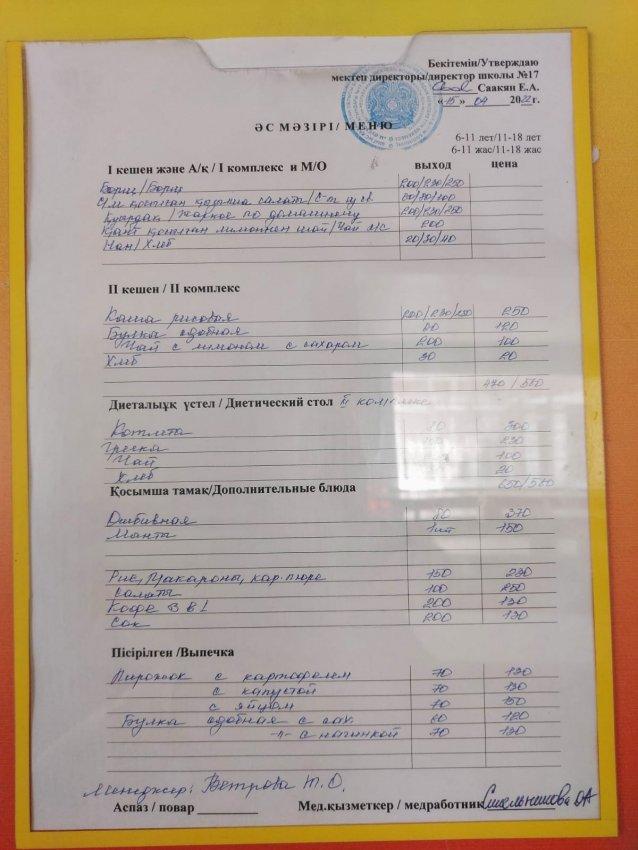 Бекітемін/Утверждаю
мектеп директоры/директор школы №17
Саакян Е.А.
«15» 04 2022г.
ӘС МӘЗІРІ/ МЕНЮ
6-11 лет/11-18 лет
6-11 жас/11-18 жас
І кешен және А/қ / І комплекс и М/О выход цена
Борщ/Борщ 200/230/250
қосылған салаты/ 60/80/100
Қуырдақ /Жаркое по домашнему 200/230/250
Қант қосылған лимонмен шай/Чай 200
Нан/Хлеб 20/30/40
ІІ кешен / ІІ комплекс
Каша рисовая 200/230/250 250
Булка сдобная 120
Чай с лимоном с сахаром 200 100
Хлеб 30 20
470/
Диеталық үстел / Диетический стол ІІ комплекс
Котлета 300
Гречка 230
Чай 100
Хлеб 20
650/
Қосымша тамақ/Дополнительные блюда
Отбивная 80 370
Манты 1шт 150
Рис, Макароны, кар. пюре 150 230
Салаты 100 250
Кофе 3 в 1 200 130
Сок 200 130
Пісірілген /Выпечка
Пирожок с картофелем 70 130
с капустой 70 130
с яйцом 70 150
Булка сдобная с сах 60 120
-"- с начинкой 70 130
Менеджер: Ветрова Т.О.
Аспаз / повар Мед.қызметкер / медработник